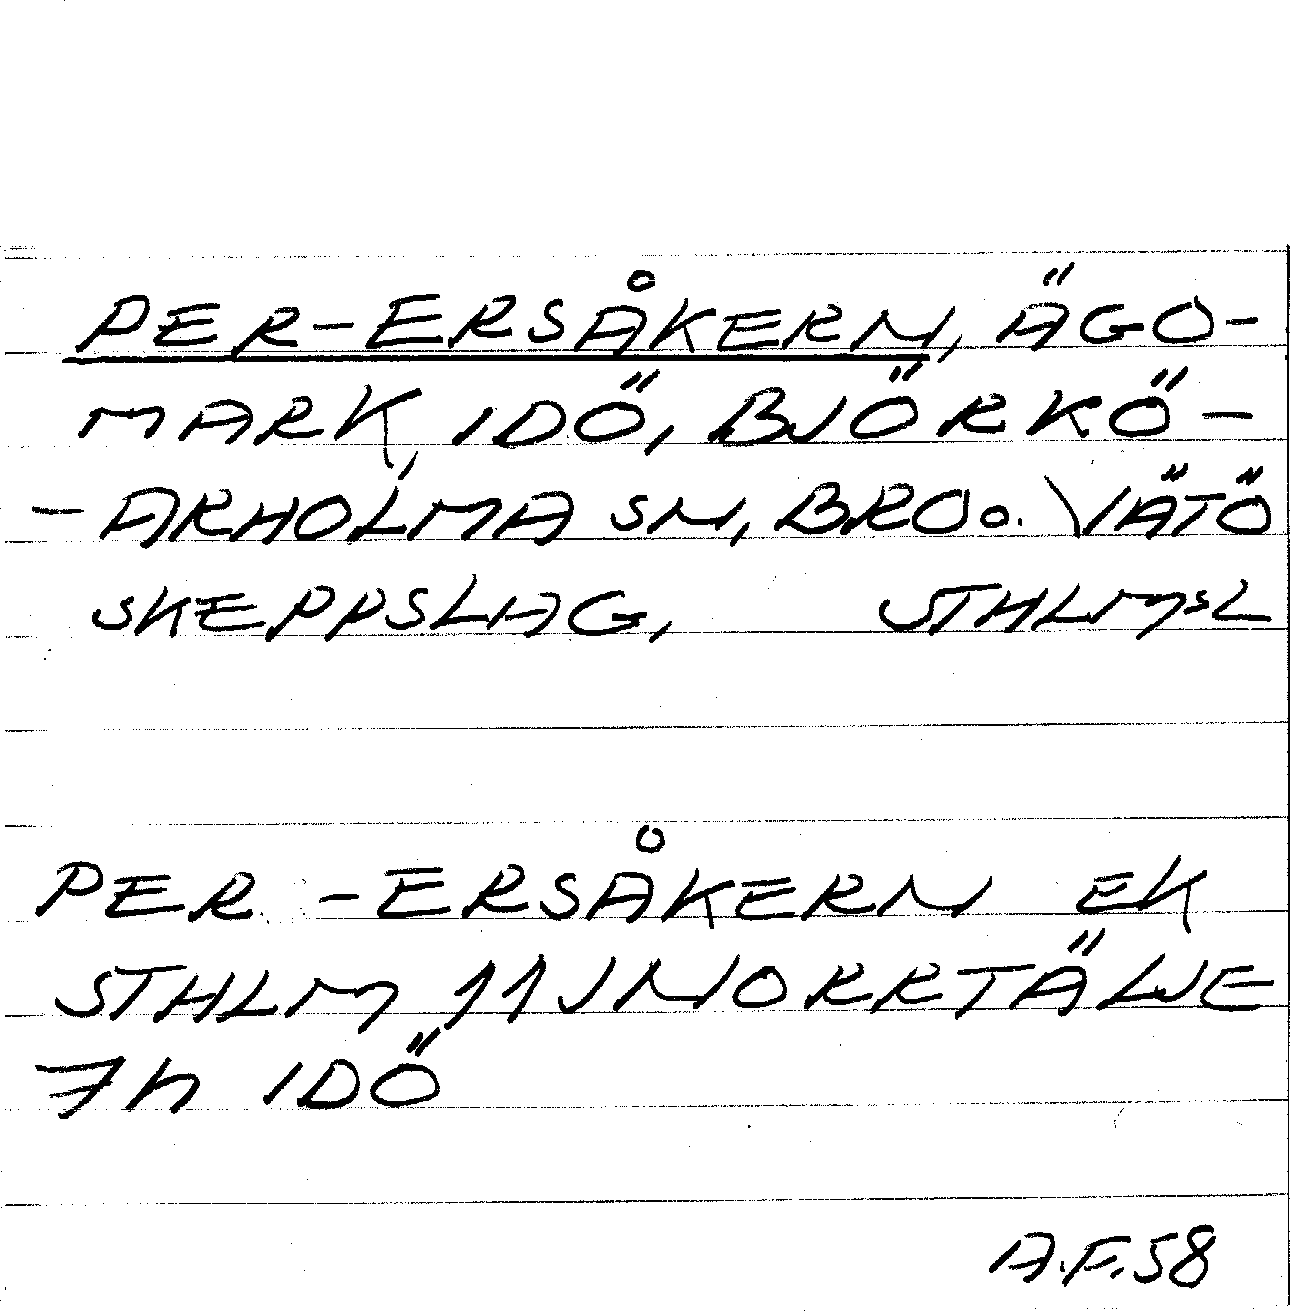 PER-ERSÅKERN, ÄGO-
MARK, IDÖ, BJÖRKÖ-
-ARHOLMA SN, BRO o. VÄTÖ
SKEPPSLAG, STHLMSL
PER-ERSÅKERN EK
STHLM 11J NORRTÄLJE
7h IDÖ
A.F. 58